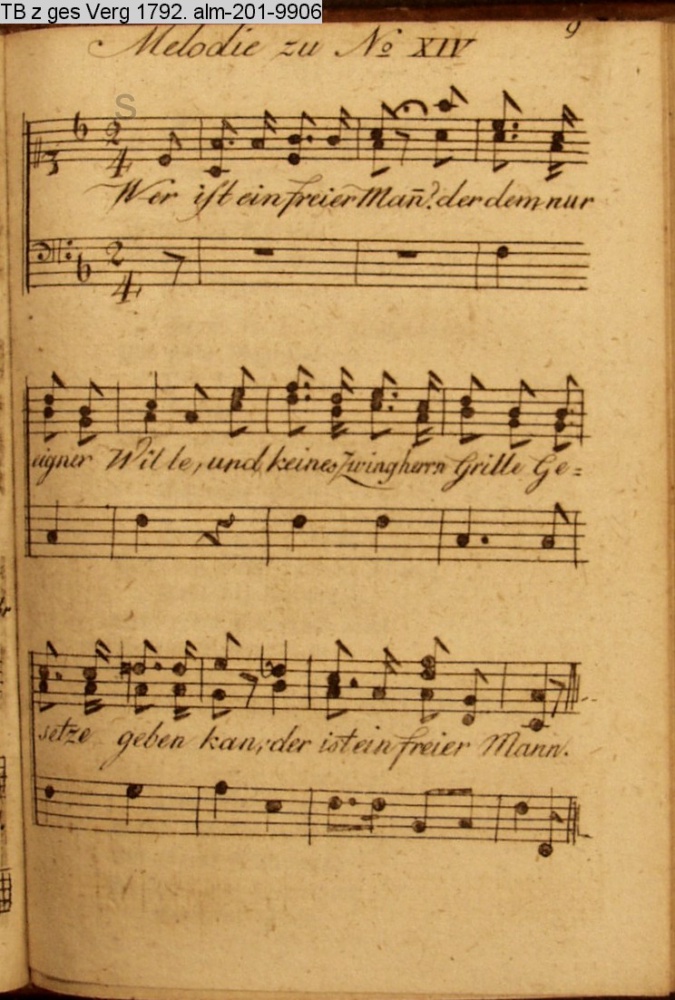 TB z ges Verg 1792. alm-201-9906
9
Melodie zu No XIV
S
2
4
Wer ist ein freier Man̄? der dem nur
2
4
eigner Wille, und keines Zwingherrn Grille Ge=
setze geben kan, der ist ein freier Mann.